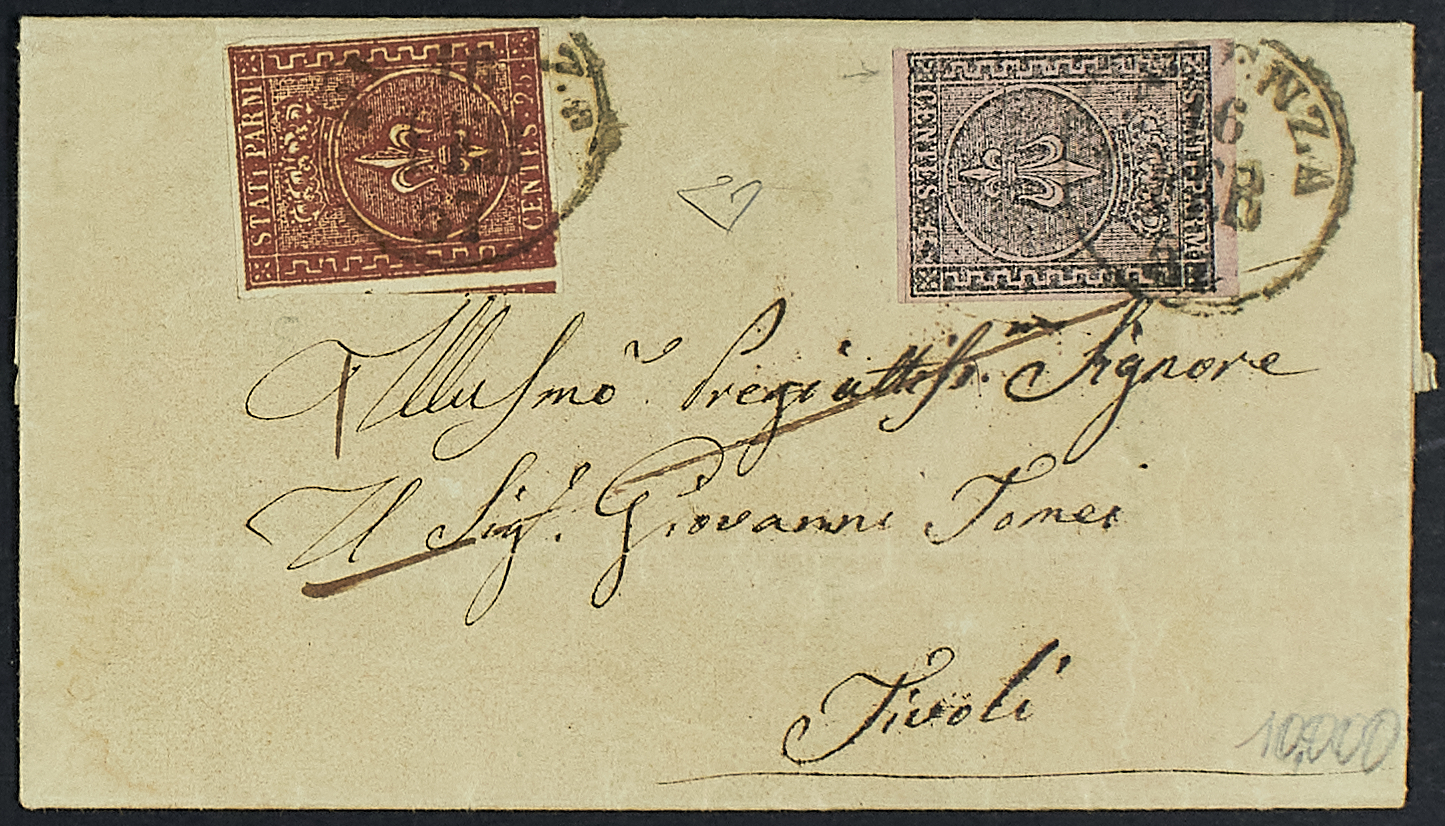 STATI PARM
CENTES. 25
57
STATI PARM
CENTES. 15
ENZA
6
Illusmo Pregiattiss. Signore
Il Sigr. Giovanni Tomei
Tivoli
10,000